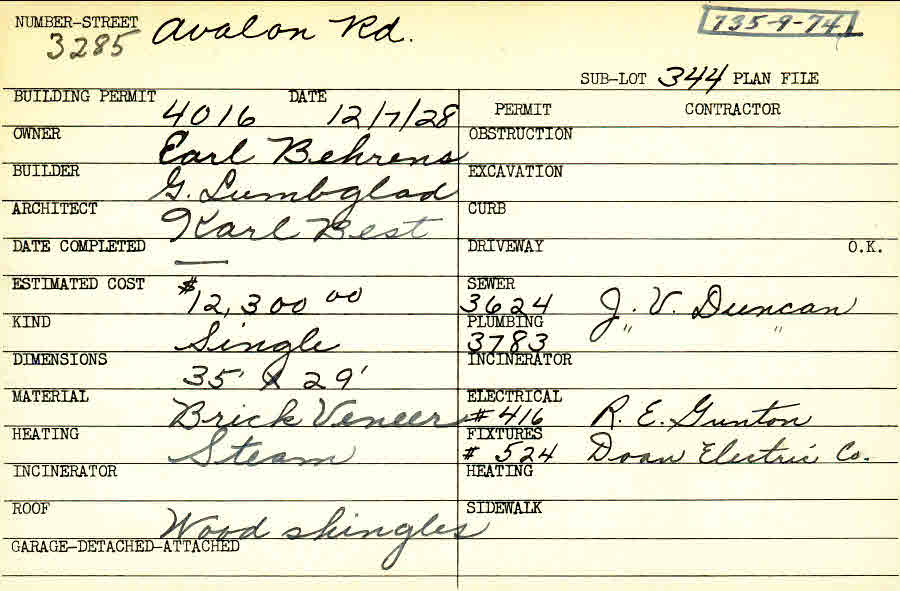 NUMBER-STREET 735-9-74
3285 Avalon Rd.
SUB-LOT 344 PLAN FILE
BUILDING PERMIT DATE PERMIT CONTRACTOR
4016 12/7/28
OWNER Earl Behrens OBSTRUCTION
BUILDER G. Lumbglad EXCAVATION
ARCHITECT Karl Best CURB
DATE COMPLETED — DRIVEWAY O.K.
ESTIMATED COST $12,300 00 SEWER
3624 J. V. Duncan
KIND Single PLUMBING
3783 " "
DIMENSIONS 35' X 29' INCINERATOR
MATERIAL Brick Veneer ELECTRICAL
#416 R. E. Gunton
HEATING Steam FIXTURES
# 524 Doan Electric Co.
INCINERATOR HEATING
ROOF Wood shingles SIDEWALK
GARAGE-DETACHED-ATTACHED